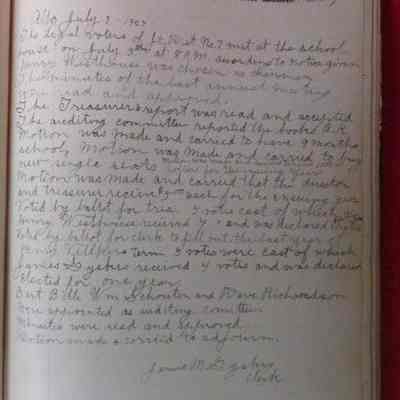 July 2 1907
The legal voters of Dist No 7 met at the school
house on July 2nd at 8 P.M. according to notice given
Henry Westhouse was chosen as chairman
The minutes of the last annual meeting
was read and approved.
The Treasurer's report was read and accepted
The auditing committee reported the books O.K.
Motion was made and carried to have 9 months
school. Motion was made and carried to buy
new single seats
Motion was made and carried that the director
and treasurer receive $5 each for the ensuing year
Voted by ballot for trea. 5 votes cast of which
Henry Westhouse received 4 and was declared
Voted by ballot for clerk to fill out the last year of
James term 5 votes were cast of which
James received 4 votes and was declared
elected for one year.
Bert Bills Wm Schouten and Dave Richardson
were appointed as auditing comitten
Minutes were read and approved.
Motion made & carried to adjourn.
James M.
Clerk